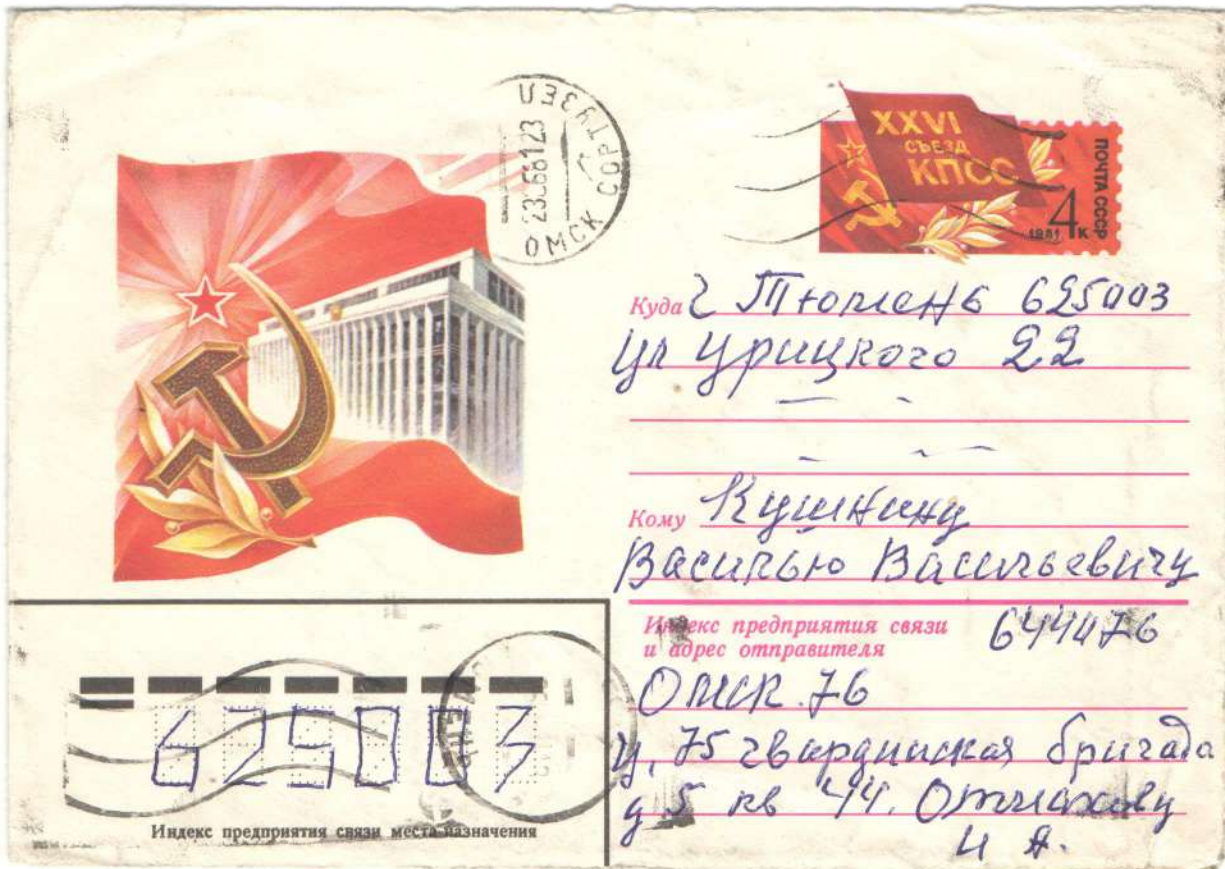 ОМСК СОРТУЗЕЛ
XXVI
СЪЕЗД
КПСС
ПОЧТА СССР
1981 4к
Куда г Тюмень 625003
ул Урицкого 22
Кому Кушнину
Василью Васильевичу
Индекс предприятия связи
и адрес отправителя 644076
Омск. 76
у, 75 гвардиская бригада
д 5 кв 44.
И А.
625003
Индекс предприятия связи места назначения